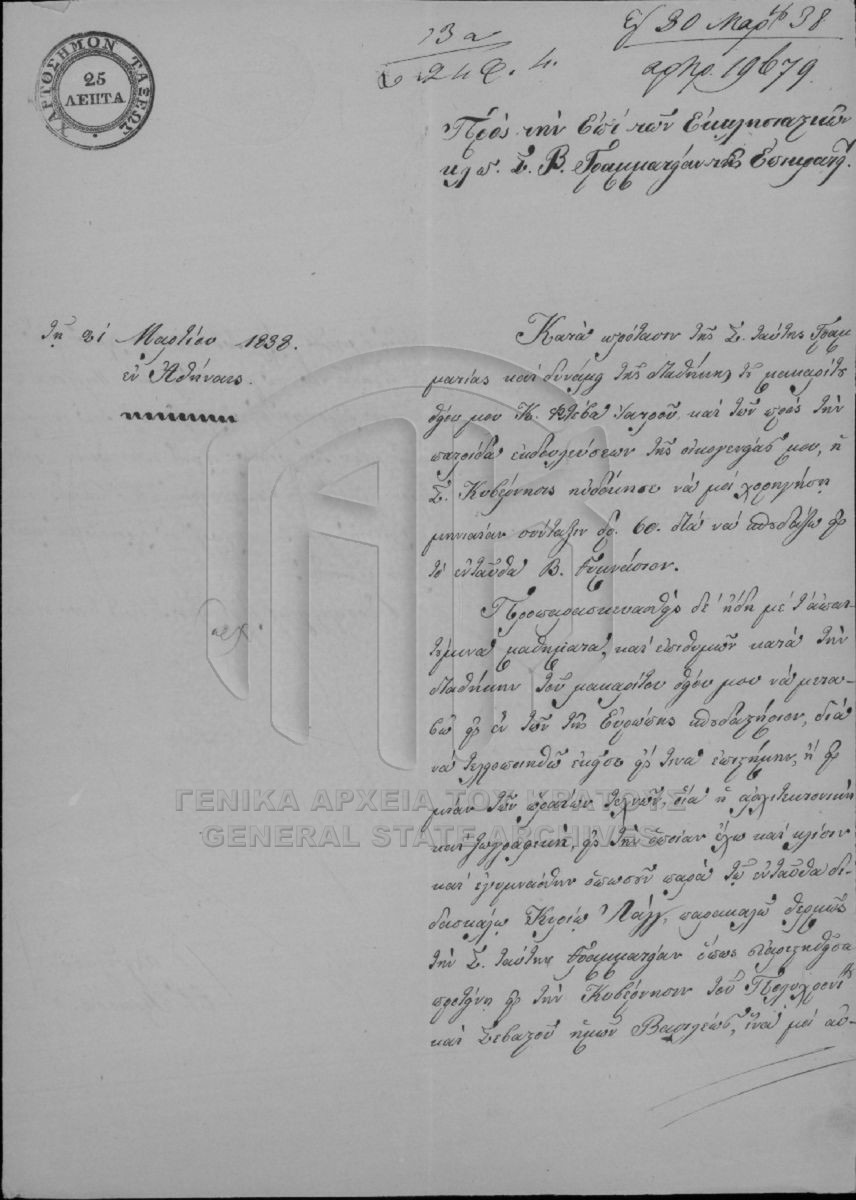 ΧΑΡΤΟΣΗΜΟΝ ΤΑΞΕΩΣ
25
ΛΕΠΤΑ
13 α
24 Φ. 4.
30 Μαρτ 38
αριθ. 19679
Πρὸς τὴν ἐπὶ τῶν Ἐκκλησιαστικῶν
κλπ. Σ. Β. Γραμματείαν τῆς Ἐπικρατ.
τῇ 21 Μαρτίου 1838.
ἐν Ἀθήναις.
Κατὰ πρότασιν τῆς Σ. ταύτης Γραμ
ματείας καὶ δυνάμει τῆς διαθήκης τοῦ μακαρίτου
θείου μου Κ. ἰατροῦ καὶ τῶν πρὸς τὴν
πατρίδα ἐκδουλεύσεων τῆς οἰκογενείας μου, ἡ
Σ. Κυβέρνησις ηὐδόκησε νὰ μοὶ χορηγήσῃ
μηνιαίαν σύνταξιν δρ. 60. διὰ νὰ σπουδάξω εἰς
τὸ ἐνταῦθα Β. Γυμνάσιον.
Προπαρασκευασθεὶς δὲ ἤδη μὲ τὰ ἀπαι
τούμενα μαθήματα, καὶ ἐπιθυμῶν κατὰ τὴν
διαθήκην τοῦ μακαρίτου θείου μου νὰ μετα-
βῶ εἰς ἓν τῶν τῆς Εὐρώπης σπουδαστήριον, διὰ
νὰ τελειοποιηθῶ εἰς τινα ἐπιστήμην, ἢ εἰς
μίαν τῶν ὡραίων τεχνῶν, οἷα ἡ ἀρχιτεκτονικὴ
καὶ ζωγραφικὴ, εἰς τὴν ὁποίαν ἔχω καὶ κλίσιν
καὶ ἐγυμνάσθην ὁπωσοῦν παρὰ τῷ ἐνταῦθα δι-
δασκάλῳ Κυρίῳ παρακαλῶ θερμῶς
τὴν Σ. ταύτην Γραμματείαν ὅπως εὐαρεστηθεῖσα
προτείνῃ εἰς τὴν Κυβέρνησιν τοῦ Πολυχρονίου
καὶ Σεβαστοῦ ἡμῶν Βασιλέως, ἵνα μοὶ αὐ-
ΓΕΝΙΚΑ ΑΡΧΕΙΑ ΤΟΥ ΚΡΑΤΟΥΣ
GENERAL STATE ARCHIVES